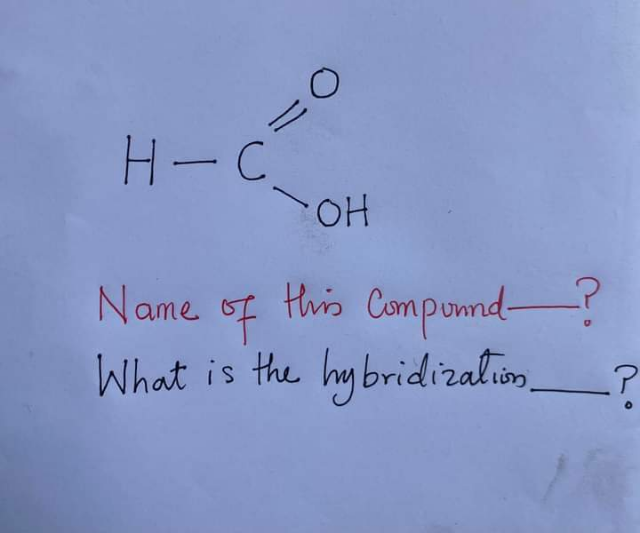 O
H – C
OH
Name of this Compound—?
What is the hybridization___?